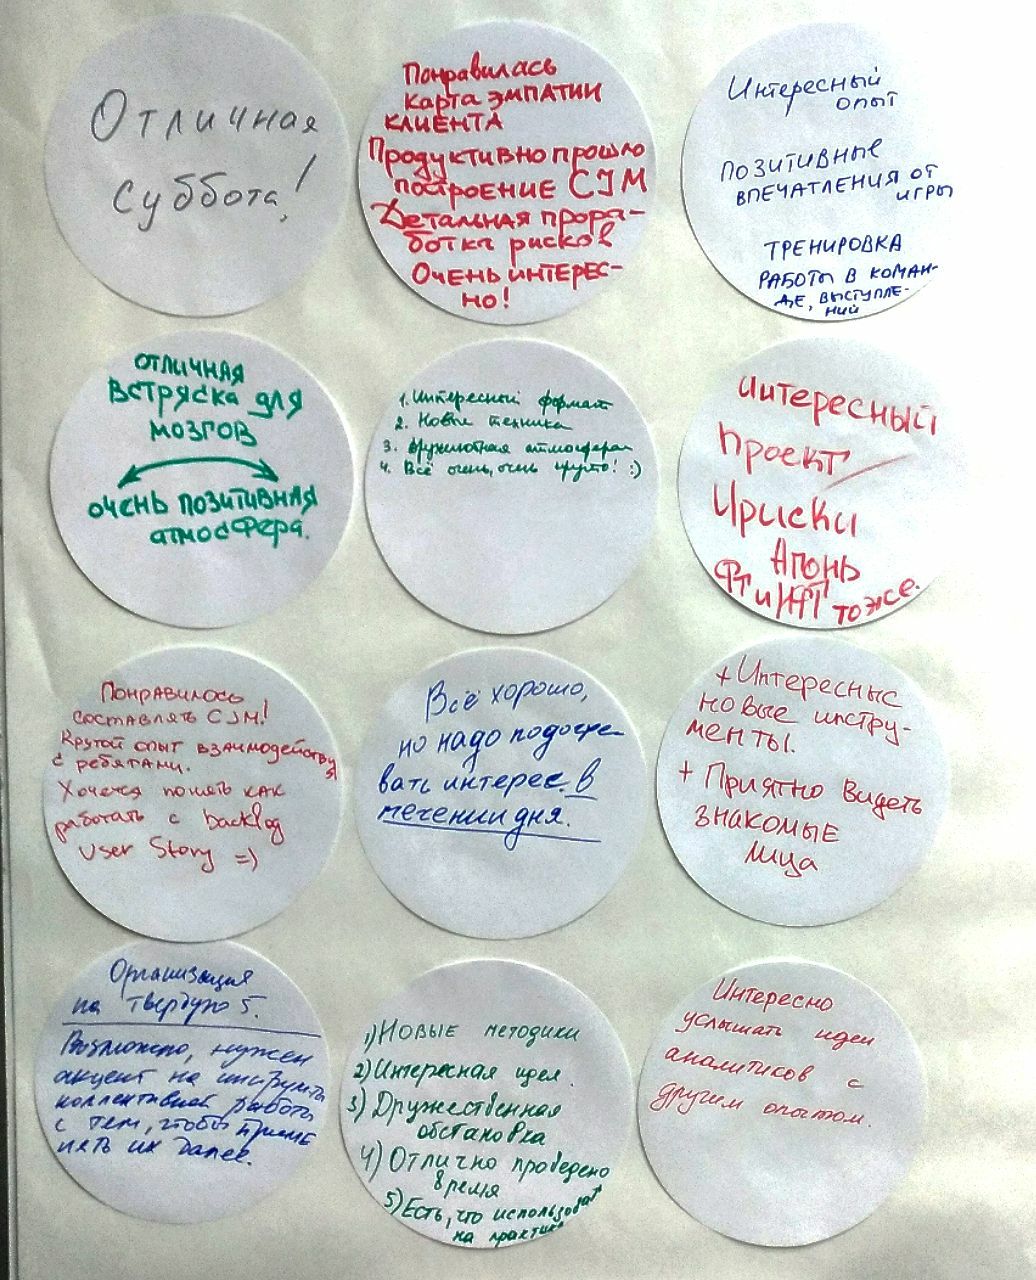 Отличная
Суббота!
Понравилась
карта эмпатии
клиента
Продуктивно прошло
построение CJM
Детальная прора-
ботка рисков
Очень интерес-
но!
Интересный
опыт
позитивные
впечатления от
игры
тренировка
работы в коман-
де, выступле-
ний
отличная
встряска для
мозгов
очень позитивная
атмосфера.
1. Интересный формат
2. Новые техники
3. Дружелюбная атмосфера
4. Всё очень, очень круто! :)
Интересный
проект
Ириски
Агонь
ФТ и НФТ тоже.
Понравилось
составлять CJM!
Крутой опыт взаимодействия
с ребятами.
Хочется понять как
работать с backlog
User Story =)
Всё хорошо,
но надо подогре-
вать интерес в
течении дня.
+ Интересные
новые инстру-
менты.
+ Приятно видеть
знакомые
лица
Организация
на твердую 5.
Возможно, нужен
акцент на
коллективной работы
с тем, чтобы приме
нять их далее.
1) Новые методики
2) Интересная идея.
3) Дружественная
обстановка
4) Отлично проведено
время
5) Есть, что использовать
на практике
Интересно
услышать идеи
аналитиков с
другим опытом.